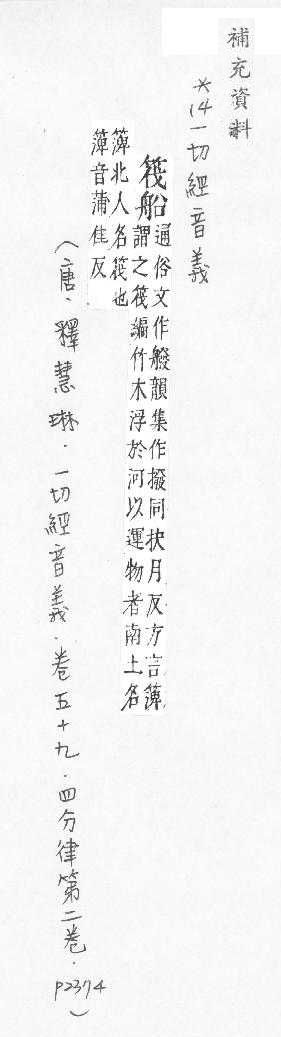 補充資料
*14一切經音義
筏船通俗文作艠韻集作撥同扶月反方言簰
謂之筏編竹木浮於河以運物者南土名
簰北人名筏也
簰音蒲佳反
(唐．釋慧琳．一切經音義．卷五十九．四分律第二卷．P2374)